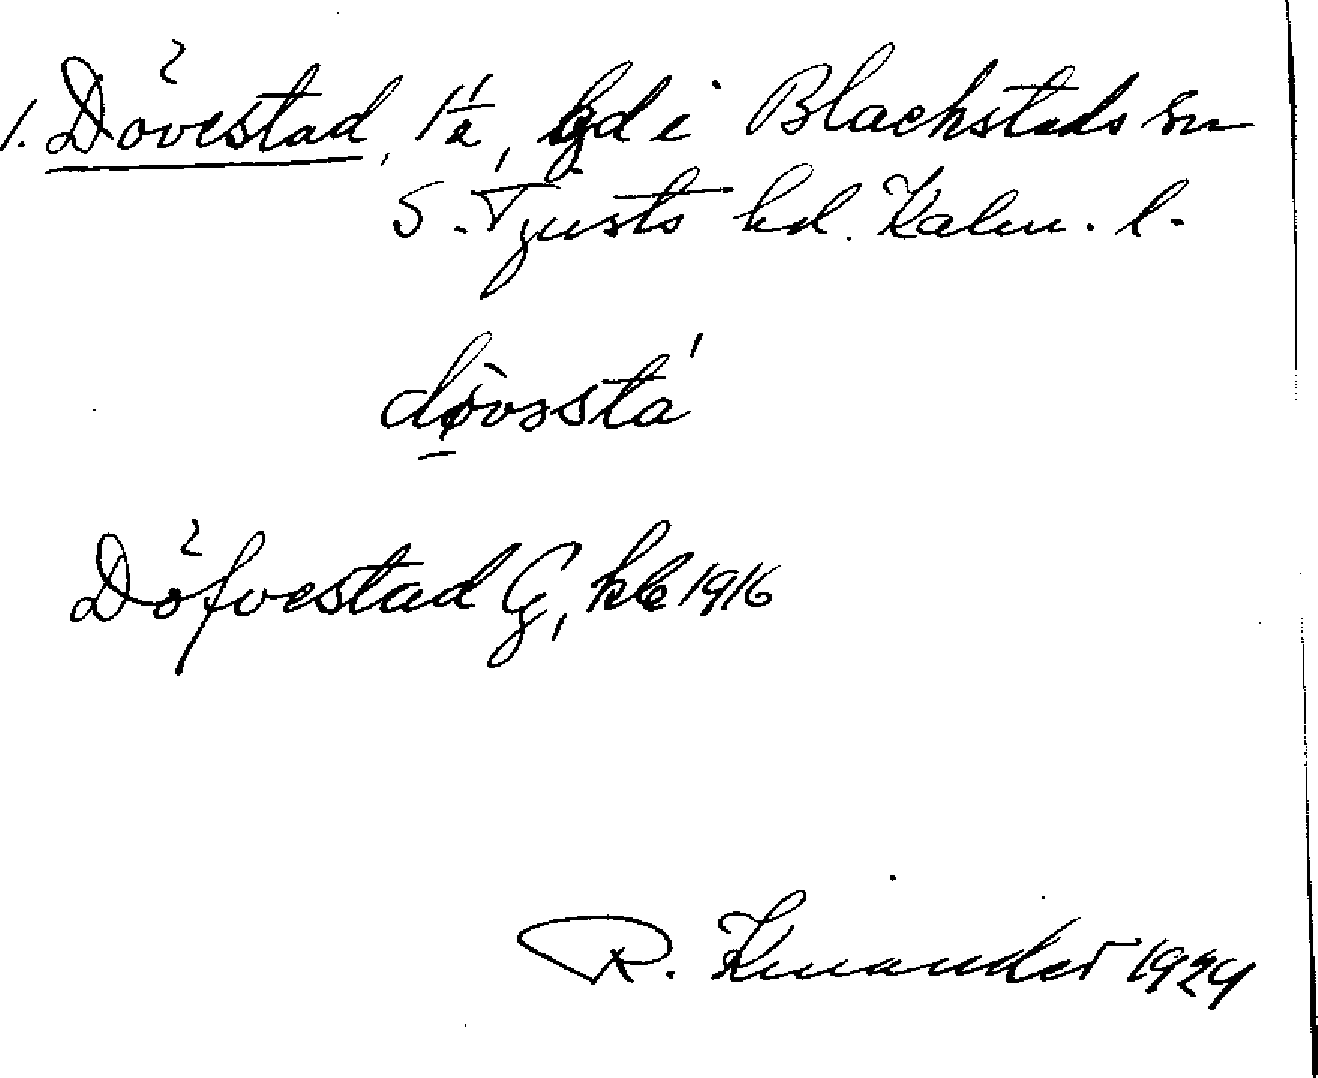 1. Dövestad, 1 1/2, hgd i Blackstads sn
S. Tjusts hd. Kalm. l.
dø̀vəstá
Döfvestad G, kb 1916
R. Kinander 1929